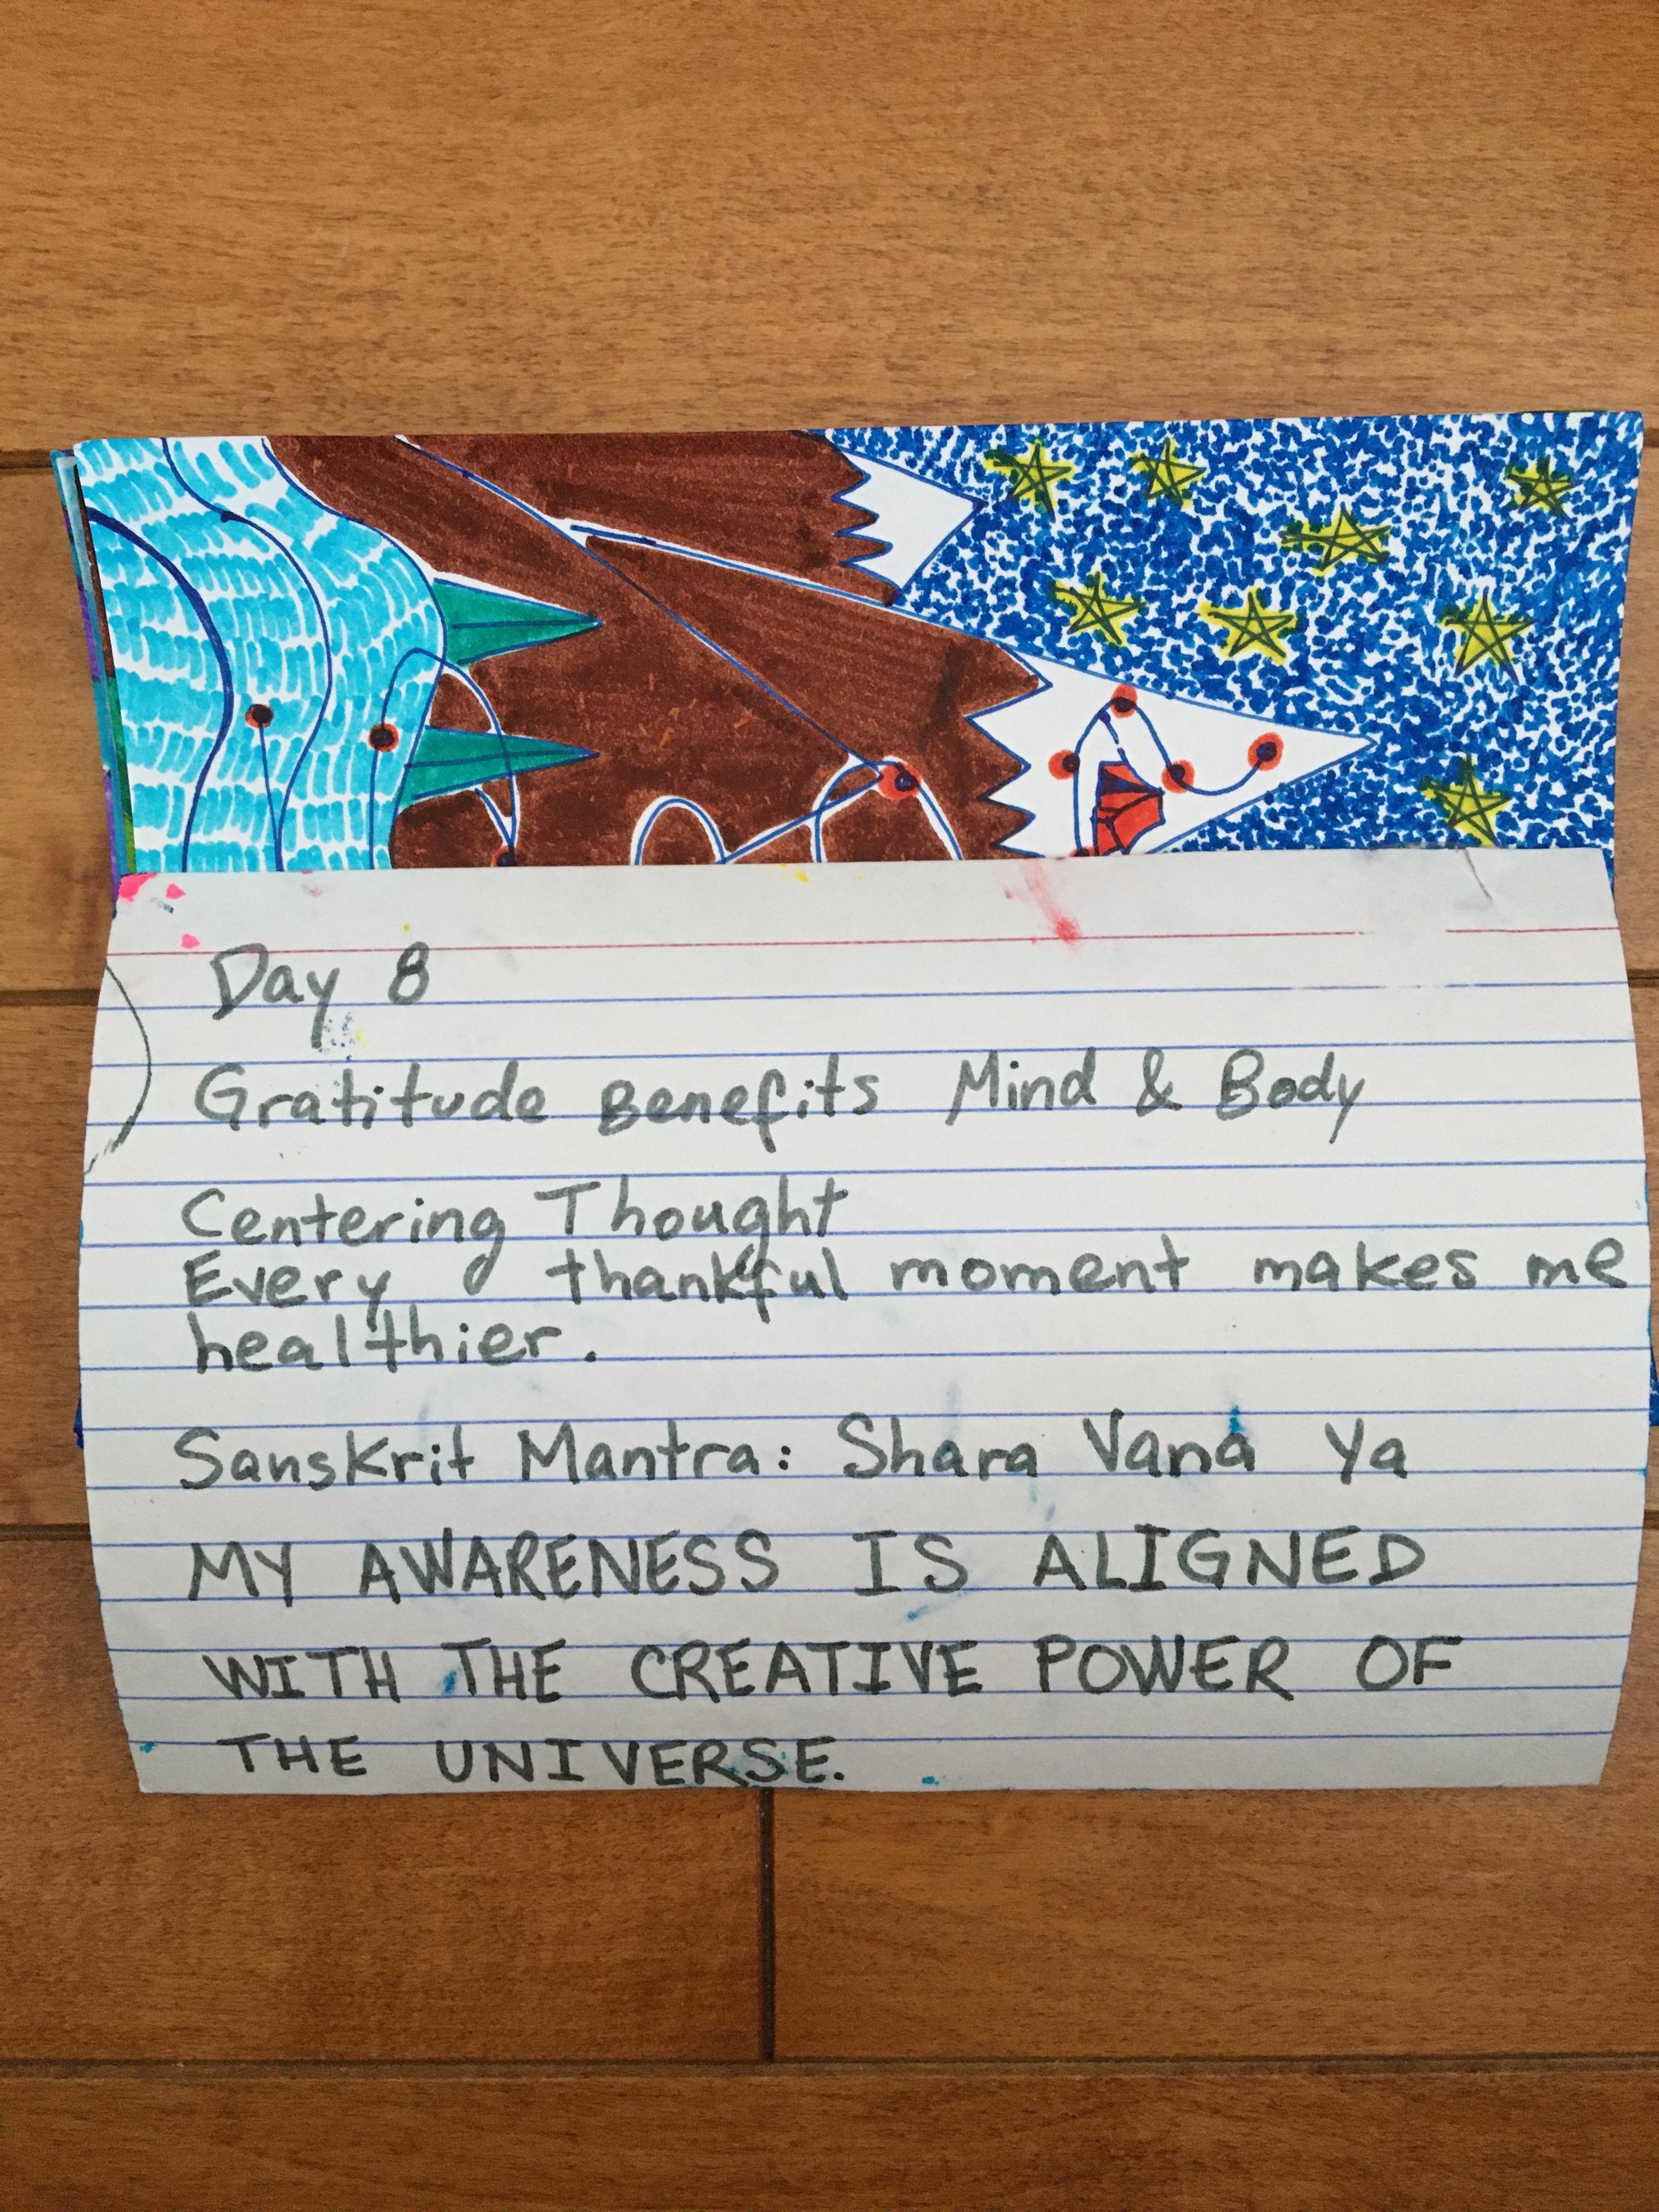 Day 8
Gratitude Benefits Mind & Body
Centering Thought
Every thankful moment makes me
healthier.
Sanskrit Mantra: Shara Vana Ya
MY AWARENESS IS ALIGNED
WITH THE CREATIVE POWER OF
THE UNIVERSE.